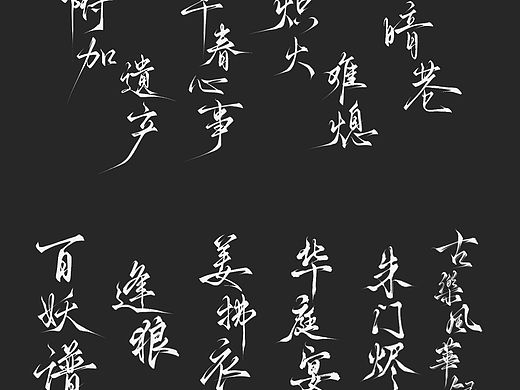 附加
遗产
春心事
炽火
难熄
暗巷
百妖谱
逢狼
姜拂衣
华庭宴
朱门烬
古樂风華